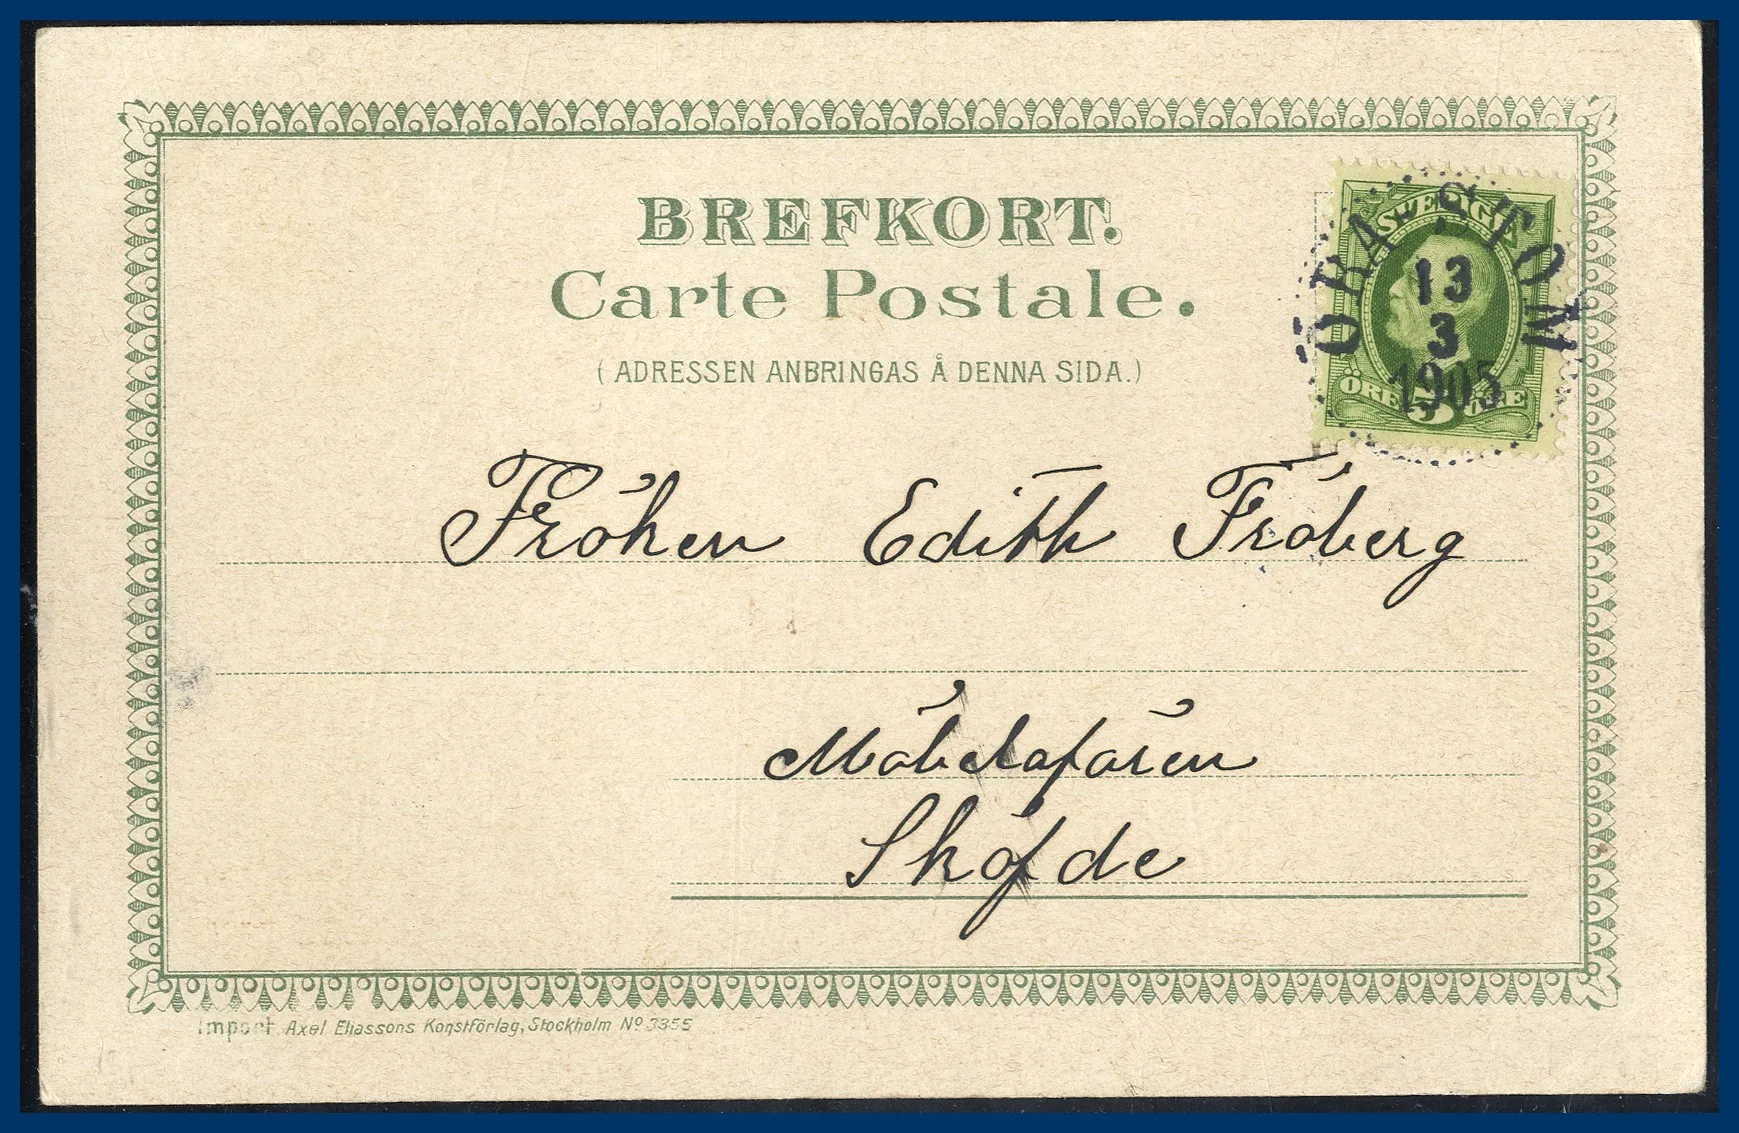 BREFKORT.
Carte Postale.
(ADRESSEN ANBRINGAS Å DENNA SIDA.)
SVERIGE
ÖRE 5 ÖRE
ÖRA-STOM
13
3
1905
Fröken Edith Fröberg
Möbelafären
Sköfde
Import Axel Eliassons Konstförlag, Stockholm Nº 3355